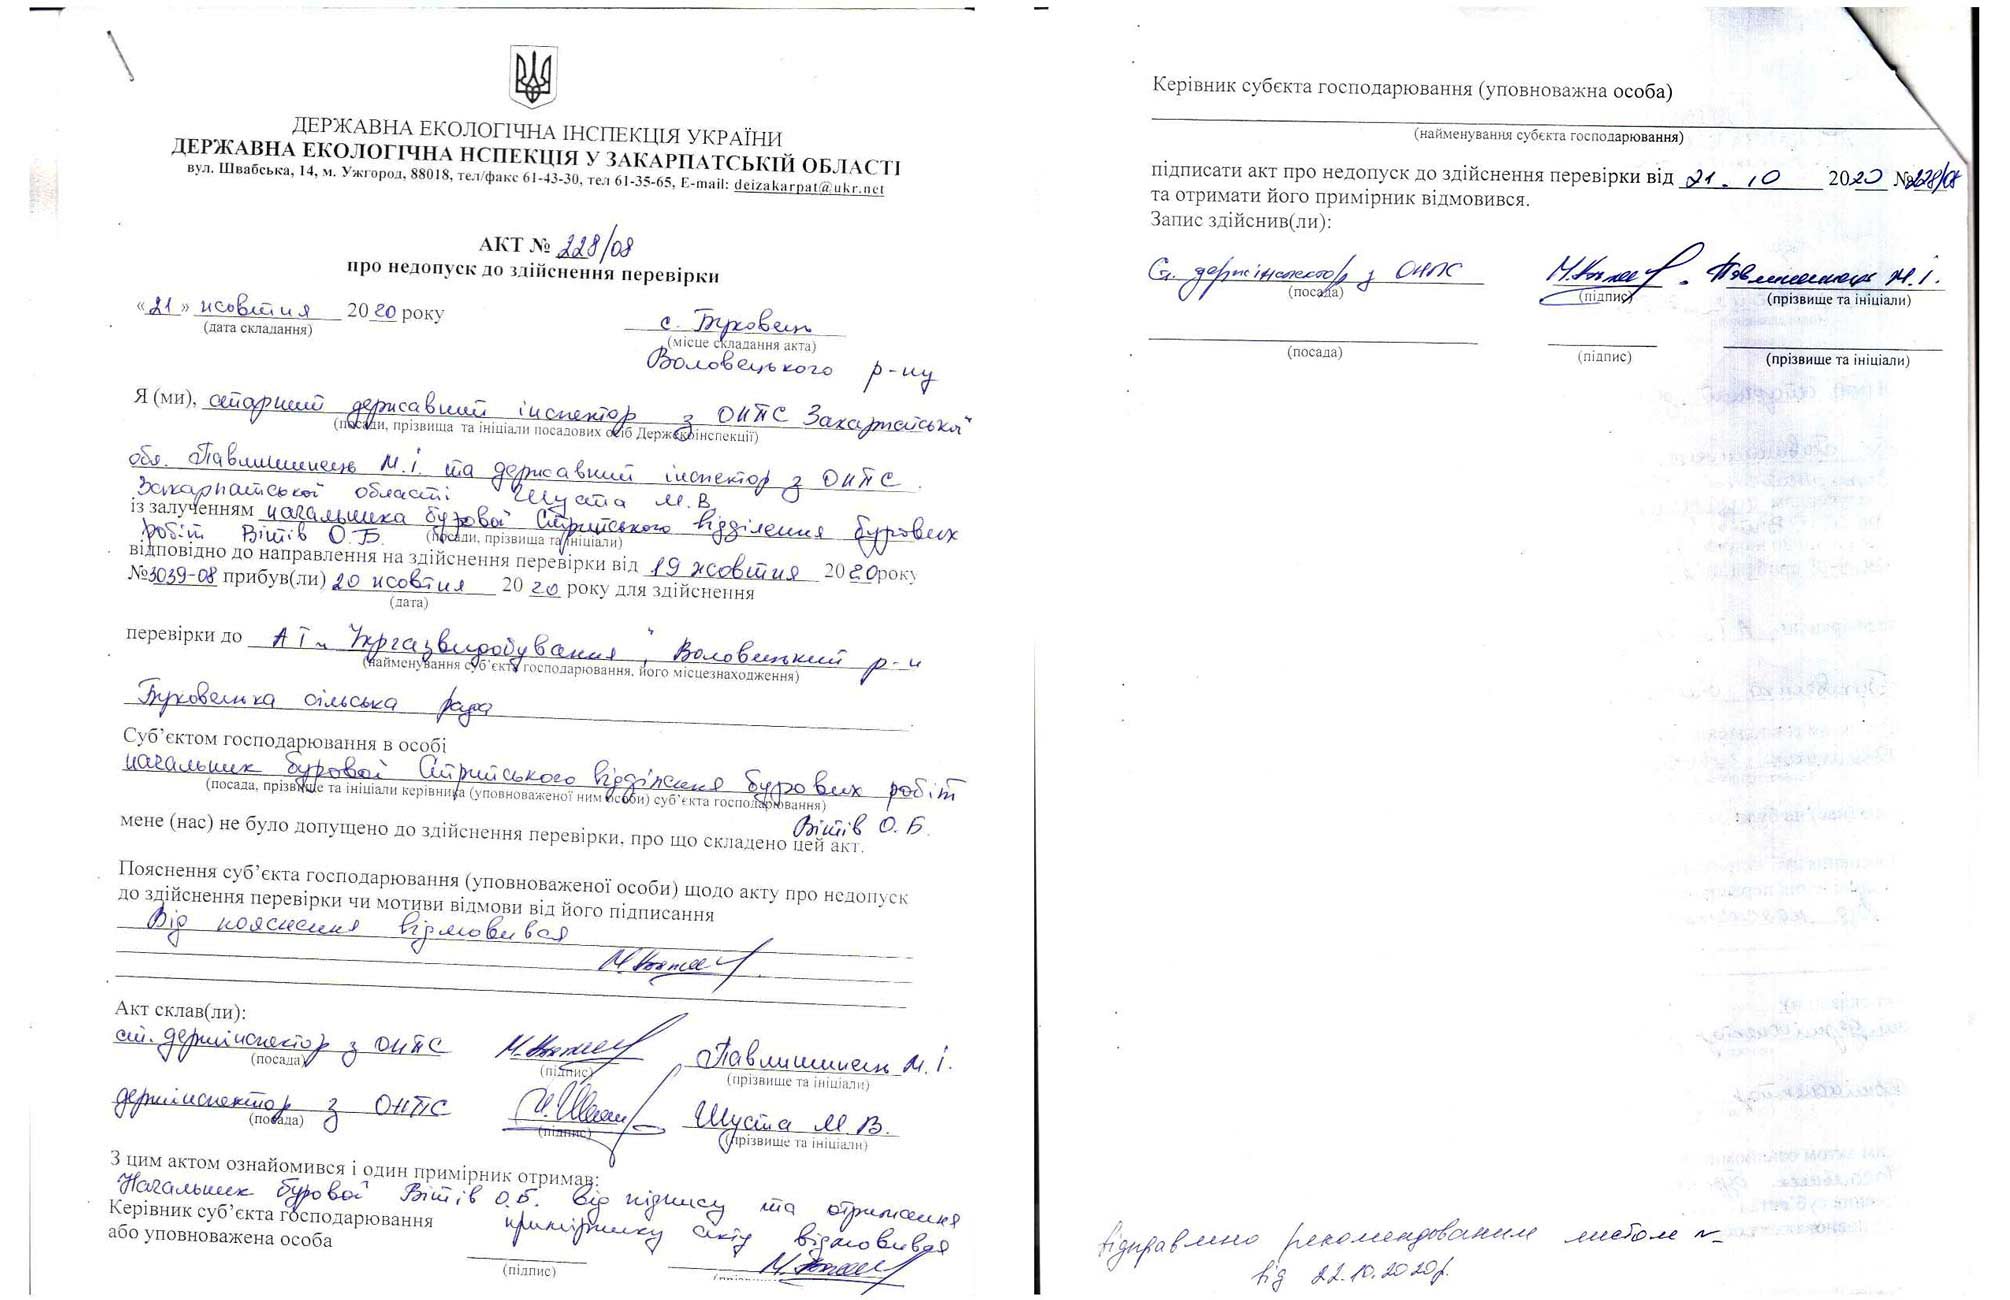 ДЕРЖАВНА ЕКОЛОГІЧНА ІНСПЕКЦІЯ УКРАЇНИ
ДЕРЖАВНА ЕКОЛОГІЧНА НСПЕКЦІЯ У ЗАКАРПАТСЬКІЙ ОБЛАСТІ
вул. Швабська, 14, м. Ужгород, 88018, тел/факс 61-43-30, тел 61-35-65, E-mail: deizakarpat@ukr.net
АКТ № 228/08
про недопуск до здійснення перевірки
«21» жовтня 2020 року
(дата складання)
с. Буковець
(місце складання акта)
Воловецького р-ну
Я (ми), старший державний інспектор з ОНПС Закарпатської
(посади, прізвища та ініціали посадових осіб Держекоінспекції)
обл. Павлишинець М.І. та державний інспектор з ОНПС
Закарпатської області Шуста М.В.
із залученням начальника бурової Стрийського відділення бурових
робіт Вітів О.Б.
(посади, прізвища та ініціали)
відповідно до направлення на здійснення перевірки від 19 жовтня 2020 року
№3039-08 прибув(ли) 20 жовтня 2020 року для здійснення
(дата)
перевірки до АТ „Укргазвидобування", Воловецький р-н
(найменування суб’єкта господарювання, його місцезнаходження)
Буковецька сільська рада
Суб’єктом господарювання в особі
начальник бурової Стрийського відділення бурових робіт
(посада, прізвище та ініціали керівника (уповноваженої ним особи) суб’єкта господарювання)
Вітів О.Б.
мене (нас) не було допущено до здійснення перевірки, про що складено цей акт.
Пояснення суб’єкта господарювання (уповноваженої особи) щодо акту про недопуск
до здійснення перевірки чи мотиви відмови від його підписання
Від пояснення відмовився
Акт склав(ли):
ст. держінспектор з ОНПС Павлишинець М.І.
(посада) (підпис) (прізвище та ініціали)
держінспектор з ОНПС Шуста М.В.
(посада) (підпис) (прізвище та ініціали)
З цим актом ознайомився і один примірник отримав:
Начальник бурової Вітів О.Б. від підпису та отримання
Керівник суб’єкта господарювання примірнику акту відмовився
або уповноважена особа
(підпис)
Керівник субєкта господарювання (уповноважна особа)
(найменування субєкта господарювання)
підписати акт про недопуск до здійснення перевірки від 21.10 2020 №228/08
та отримати його примірник відмовився.
Запис здійснив(ли):
Ст. держінспектор з ОНПС Павлишинець М.І.
(посада) (підпис) (прізвище та ініціали)
(посада) (підпис) (прізвище та ініціали)
Відправлено рекомендованим листом №
від 22.10.2020р.